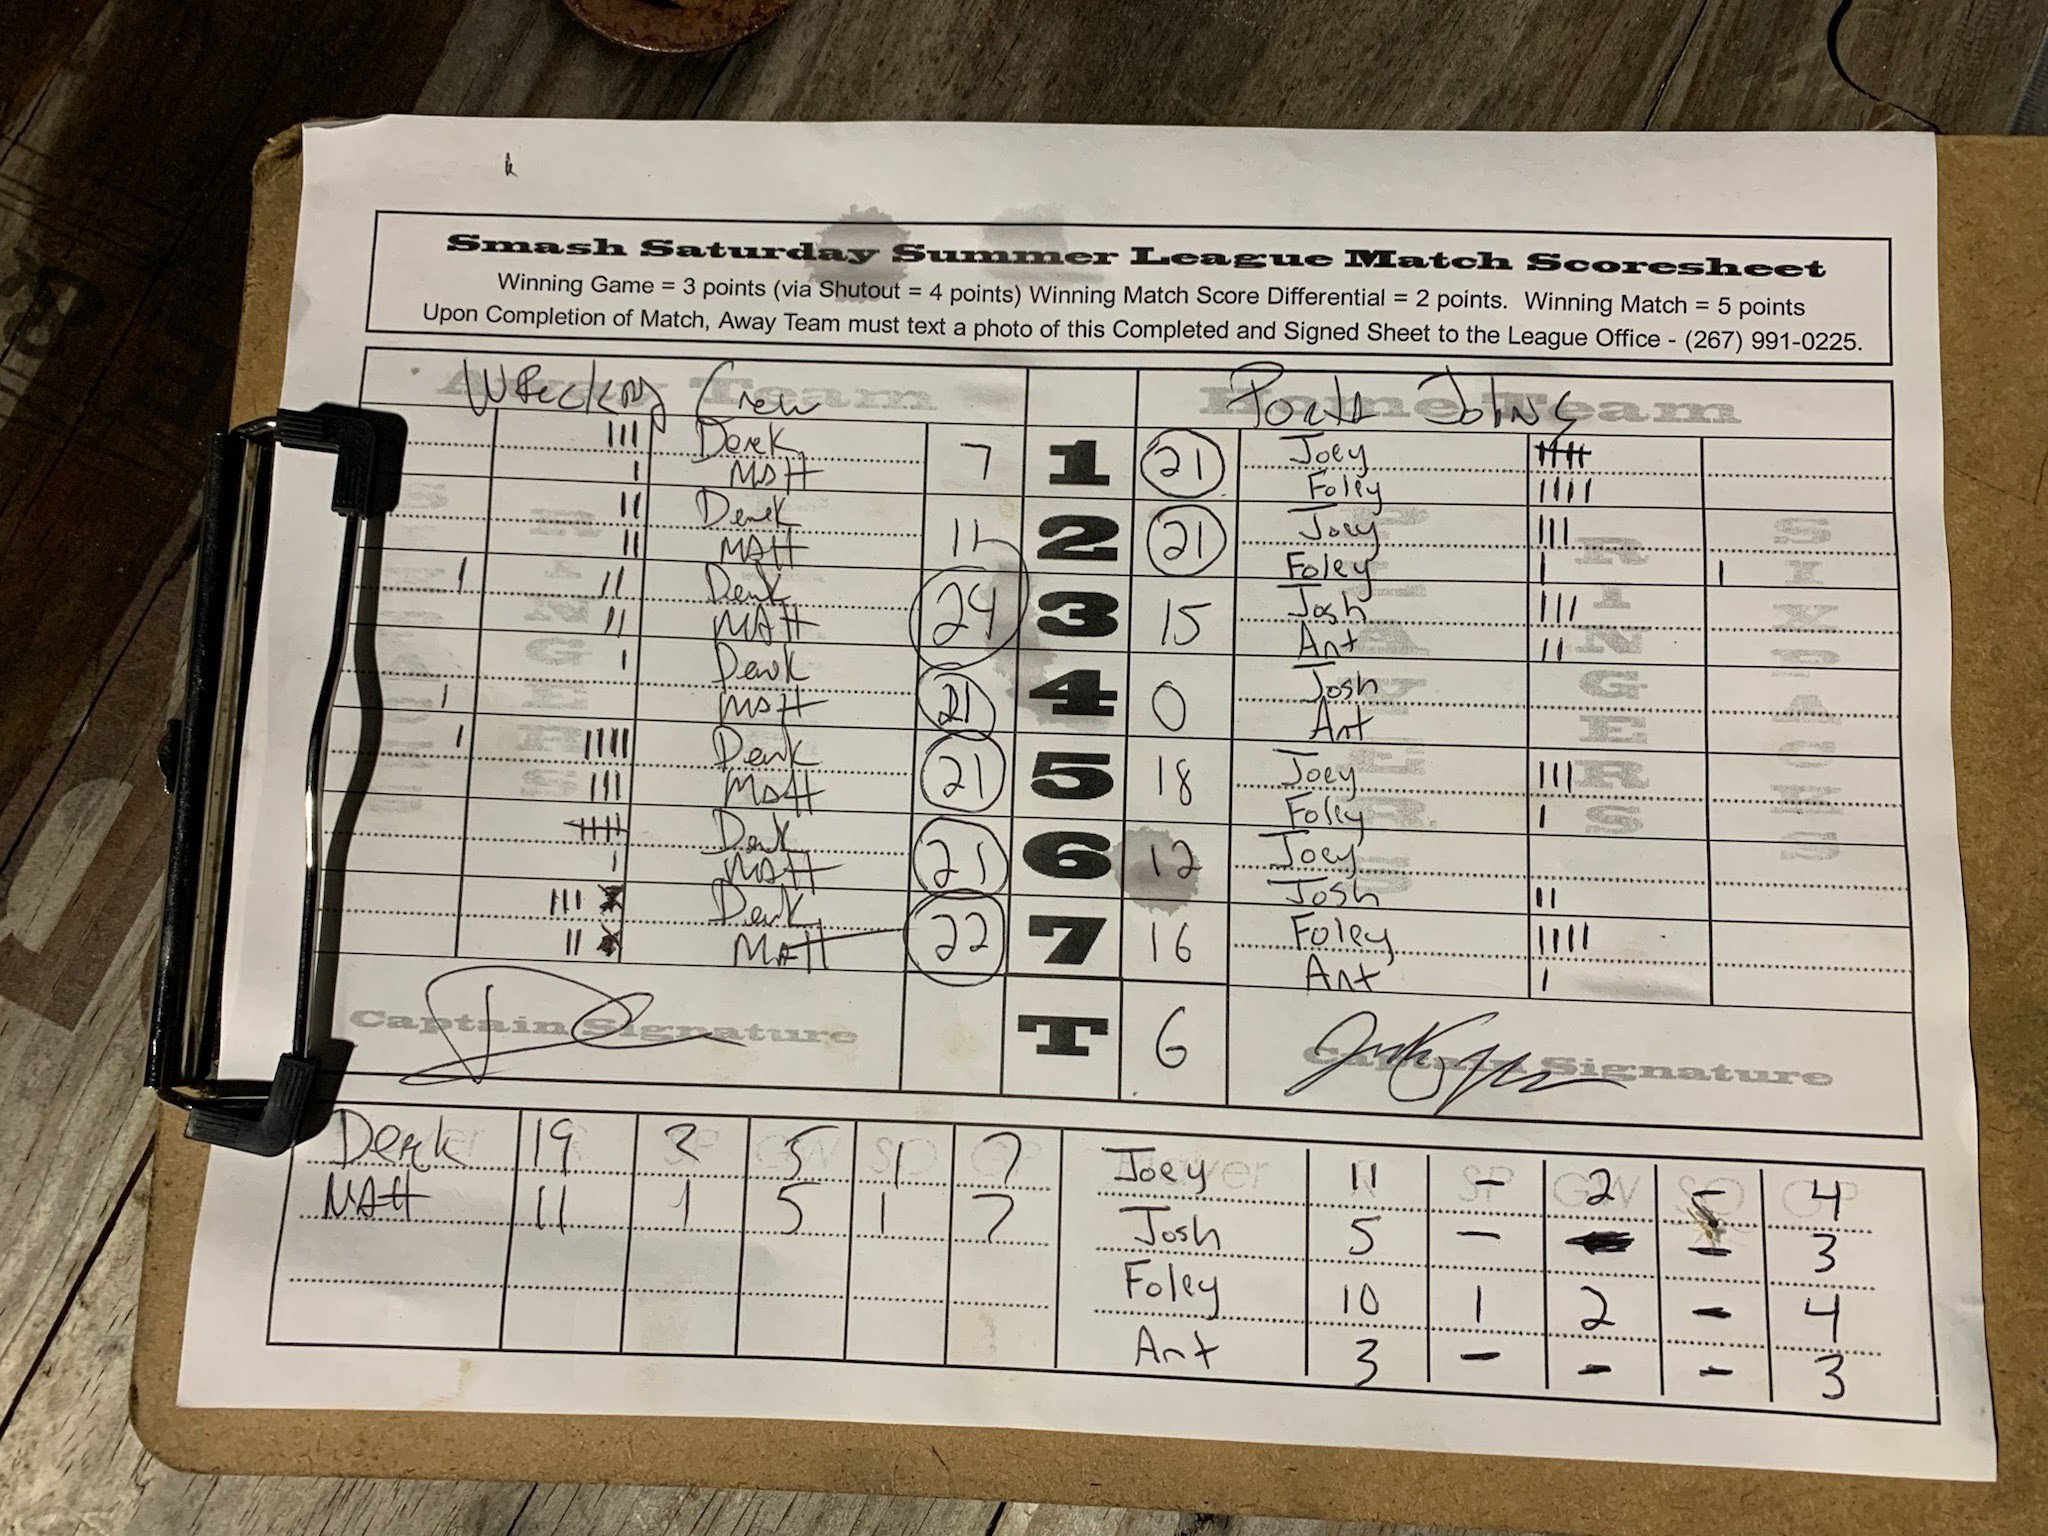 Smash Saturday Summer League Match Scoresheet
Winning Game = 3 points (via Shutout = 4 points) Winning Match Score Differential = 2 points. Winning Match = 5 points
Upon Completion of Match, Away Team must text a photo of this Completed and Signed Sheet to the League Office - (267) 991-0225.
Away Team Home Team
Crew Johns
Derek 7 1 21 Joey
Matt Foley
Derek 2 21 Joey
Matt Foley
Derek 24 3 15 Josh
Matt Ant
Derek 21 4 0 Josh
Matt Ant
Derek 21 5 18 Joey
Matt Foley
Derek 21 6 12 Joey
Matt Josh
Derek 22 7 16 Foley
Matt Ant
Captain Signature T 6 Captain Signature
SIXPACKS RINGERS PLAYERS RINGERS SIXPACKS
Player R SP GW SO GP Player R SP GW SO GP
Derek 19 2 5 1 7 Joey 11 - 2 4
Matt 11 1 5 1 7 Josh 5 - - 3
Foley 10 1 2 - 4
Ant 3 - - - 3